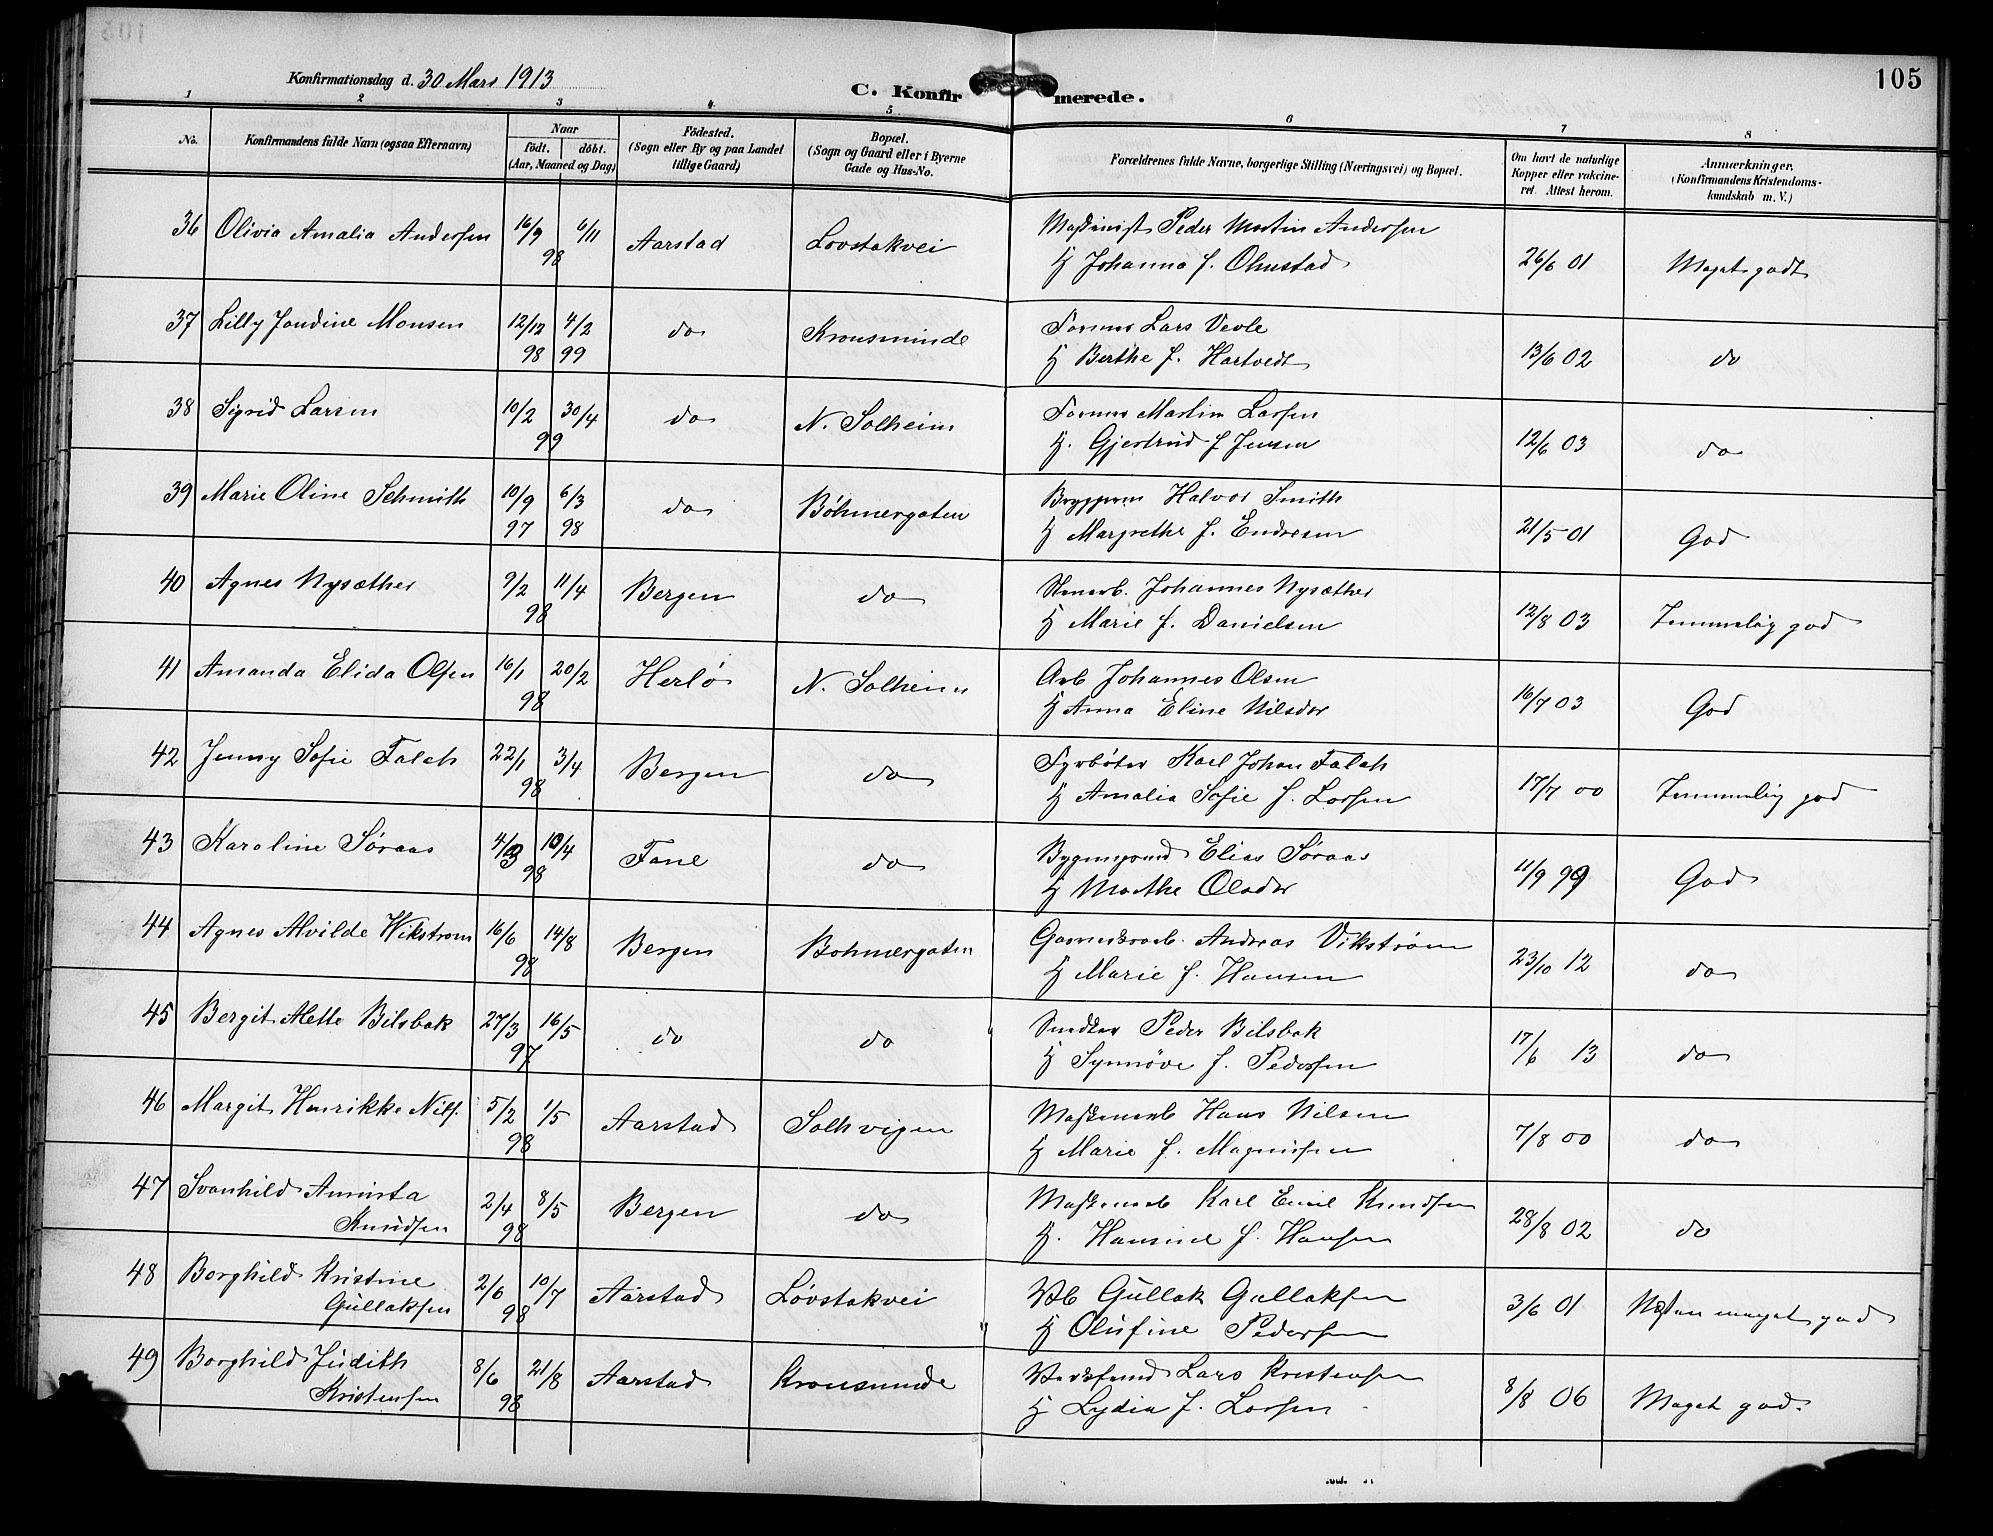 105
Konfirmationsdag d. 30 Mars 1913
C. Konfirmerede.
1 2 3 4 5 6 7 8
No. Konfirmandens fulde Navn (ogsaa Efternavn) Naar født. døbt. (Aar, Maaned og Dag) Fødested. (Sogn eller By og paa Landet tillige Gaard) Bopæl. (Sogn og Gaard eller i Byerne Gade og Hus-No. Forældrenes fulde Navne, borgerlige Stilling (Næringsvei) og Bopæl. Om havt de naturlige Kopper eller vakcineret. Attest herom. Anmærkninger. (Konfirmandens Kristendomskundskab m. V.)
36 Olivia Amalia Andersen 16/9 6/11 98 Aarstad Lovstakvei Maskinist Peder Martin Andersen
H Johanna f. Ohnstad 26/6 01 Meget godt
37 Lilly Jondine Monsen 12/12 98 4/2 99 do Kronsminde Former Lars Vevle
H Berthe f. Hartvedt 13/6 02 do
38 Sigrid Larsen 10/2 30/4 99 do N. Solheim Former Martin Larsen
H. Gjertrud f Jensen 12/6 03 do
39 Marie Oline Schmith 10/9 97 6/3 98 do Bøhmergaten Halvor Smith
H Margrethe f. Endresen 21/5 01 God
40 Agnes Nysæther 9/2 11/4 98 Bergen do Stenarb. Johannes Nysæther
H Marie f. Danielsen 12/8 03 Temmelig god
41 Amanda Elida Olsen 16/1 20/2 98 Herlø N. Solheim Arb Johannes Olsen
H Anna Eline Nilsdr 16/7 03 God
42 Jenny Sofie Falch 22/1 3/4 98 Bergen do Fyrbøter Karl Johan Falch
H Amalia Sofie f. Larsen 17/7 00 Temmelig god
43 Karoline Søraas 4/3 10/4 98 Fane do Elias Søraas
H Marthe Olsdr 11/9 99 God
44 Agnes Alvilde Wikstrom 16/6 14/8 98 Bergen Bohmergaten Andreas Vikstrøm
H Marie f. Hansen 23/10 12 do
45 Bergit Mette Bilsbak 27/3 16/5 97 do do Snedker Peder Bilsbak
H Synnøve f. Pedersen 17/6 13 do
46 Margit Henrikke Nils. 5/2 1/5 98 Aarstad Solhvigen Maskinarb Hans Nilsen
H Marie f. Magnussen 7/8 00 do
47 Svanhild Knudsen 2/4 8/5 98 Bergen do Maskinarb Karl Emil Knudsen
H. Hansine f. Hansen 28/8 02 do
48 Borghild Kristine Gullaksen 2/6 10/7 98 Aarstad Løvstakvei Gullak Gullaksen
H Olufine Pedersen 3/6 01 Næsten meget god
49 Borghild Judith Kristensen 8/6 21/8 98 Aarstad Kronsminde Lars Kristensen
H Lydia f. Larsen 8/8 06 Meget god.